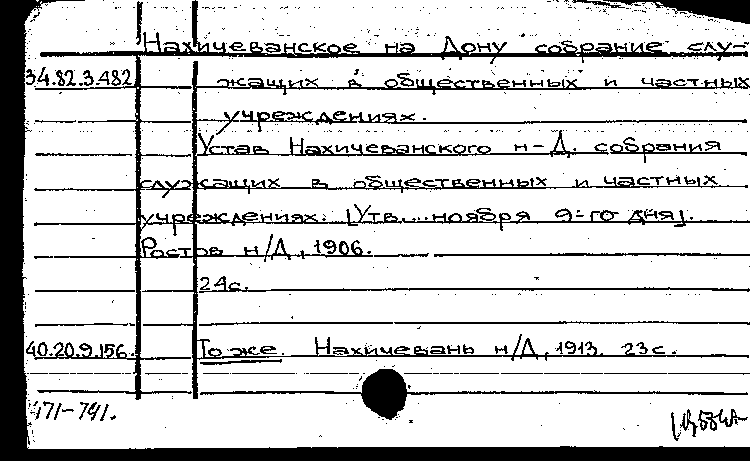 Нахичеванское на Дону собрание слу-
34.82.3.482 жащих в общественных и частных
учреждениях.
Устав Нахичеванского н-Д. собрания
служащих в общественных и частных
учреждениях. [Утв.... ноября 9-го дня].
Ростов н/Д, 1906.
24с.
40.20.9.156. То же. Нахичевань н/Д, 1913. 23с.
471-741.